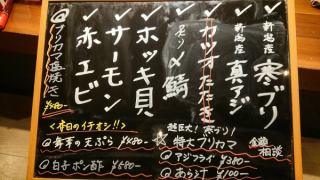 ✓新潟産 寒ブリ
✓新潟産 真アジ
✓カツオたたき
✓炙り〆鯖
✓ホッキ貝
✓サーモン
✓赤エビ
@ブリカマ塩焼き ¥580-
<本日のイチオシ!!>
@舞茸の天ぷら ¥480-
@白子ポン酢 ¥580-
超巨大!寒ブリ!
☆特大ブリカマ 金額相談
@アジフライ ¥380-
@あら汁 ¥100-